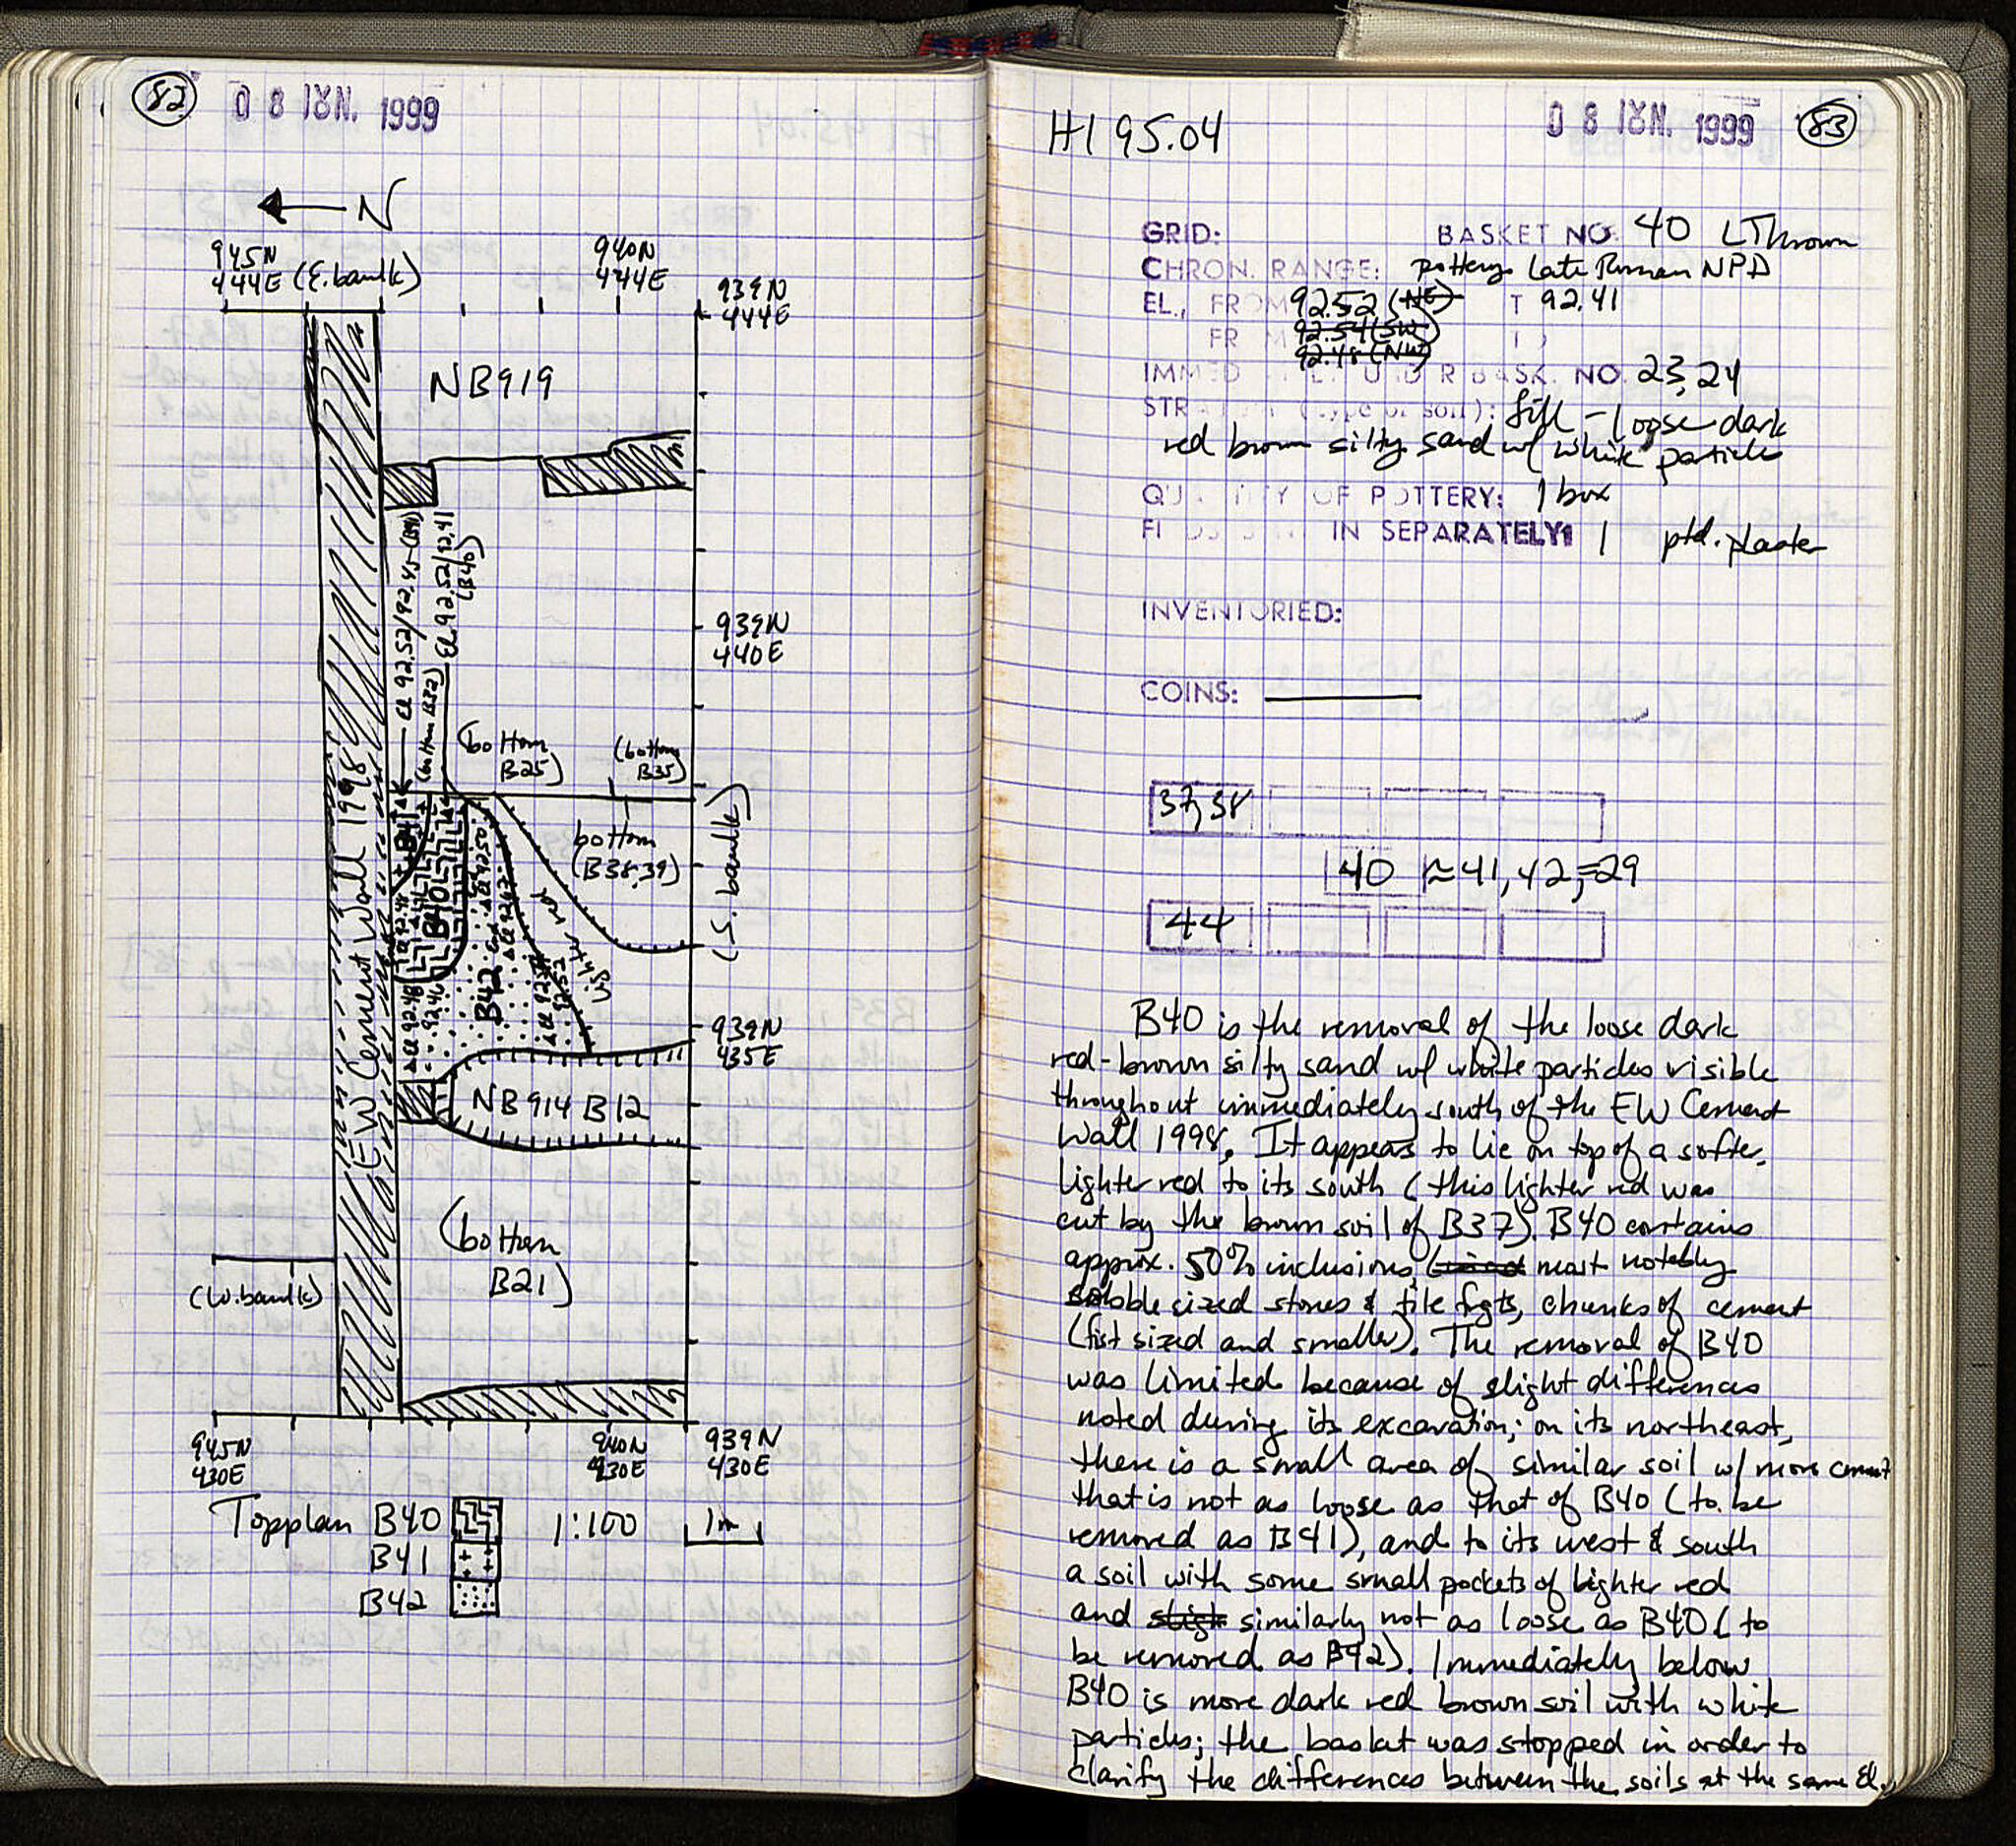 82
08 IUN. 1999
N
945N
444E (E. baulk)
940N
444E
939N
444E
NB919
El 92.52/92.45 (B41)
(bottom B32)
El 92.52/92.41
(B40)
939N
440E
(bottom
B25)
(bottom
B35)
EW Cement Wall 1998
B41
B40
B42
bottom
(B38,39)
lighter red
(S. baulk)
El 92.48
92.41
939N
435E
NB914 B12
(bottom
B21)
(W. baulk)
945N
430E
940N
430E
939N
430E
Topplan B40
1:100
1m
B41
B42
H1 95.04
08 IUN. 1999
83
GRID:
BASKET NO. 40 LThrown
CHRON. RANGE: pottery Late Roman NPD
EL., FROM 92.52 (NE) T 92.41
FROM 92.54 (SW)
92.48 (NW)
IMMED UND R BASK. NO. 23, 24
STR (type of soil): fill - loose dark
red brown silty sand w/ white particles
QU TITY OF POTTERY: 1 box
FI DS IN SEPARATELY: 1 ptd. plaster
INVENTORIED:
COINS:
37, 38
40 ≈ 41, 42, = 29
44
B40 is the removal of the loose dark
red-brown silty sand w/ white particles visible
throughout immediately south of the EW Cement
Wall 1998. It appears to lie on top of a softer,
lighter red to its south (this lighter red was
cut by the brown soil of B37). B40 contains
approx. 50% inclusions, most notably
cobble sized stones & tile frgts, chunks of cement
(fist sized and smaller). The removal of B40
was limited because of slight differences
noted during its excavation; on its northeast,
there is a small area of similar soil w/ more cement
that is not as loose as that of B40 (to be
removed as B41), and to its west & south
a soil with some small pockets of lighter red
and sligh similarly not as loose as B40 (to
be removed as B42). Immediately below
B40 is more dark red brown soil with white
particles; the basket was stopped in order to
clarify the differences between the soils at the same El.